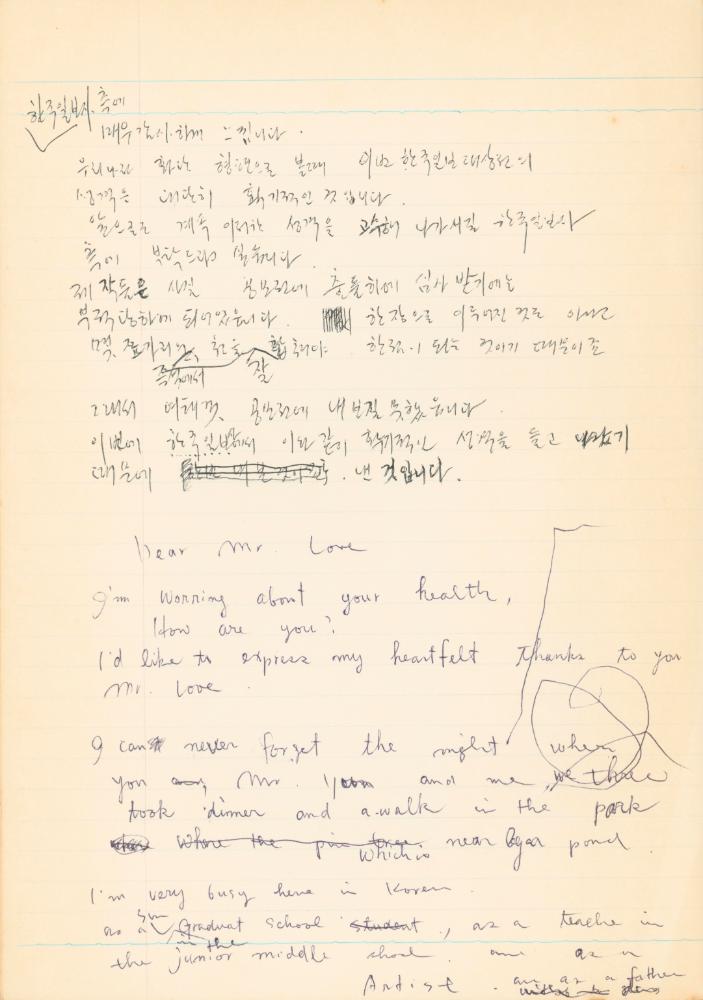 한국일보사 측에
매우 감사하게 느낍니다.
우리나라 화단 형편으로 볼때 이번 한국일보 대상전의
성격은 대단히 획기적인 것입니다.
앞으로도 계속 이러한 성격을 고수해 나가시길 한국일보사
측에 부탁드리고 싶읍니다.
제 작품은 사실 공모전에 출품하여 심사 받기에는
부적당하게 되어있읍니다. 한장으로 이루어진 것도 아니고
몇
즉석에서 잘
그래서 여태껏 공모전에 내보질 못했읍니다.
이번에 한국일보에서 이와 같이 획기적인 성격을 들고 나왔기
때문에 낸 것입니다.
Dear Mr. Love
I'm worring about your health,
How are you?
I'd like to express my heartfelt thanks to you
Mr. Love.
I can never forget the night when
you Mr. Yoon and me, we three
took dinner and a walk in the park
where the which is near pond.
I'm very busy here in Korea.
as a graduat school student, as a teache in
in the
the junior middle shool. and as a
Artist. an as a father